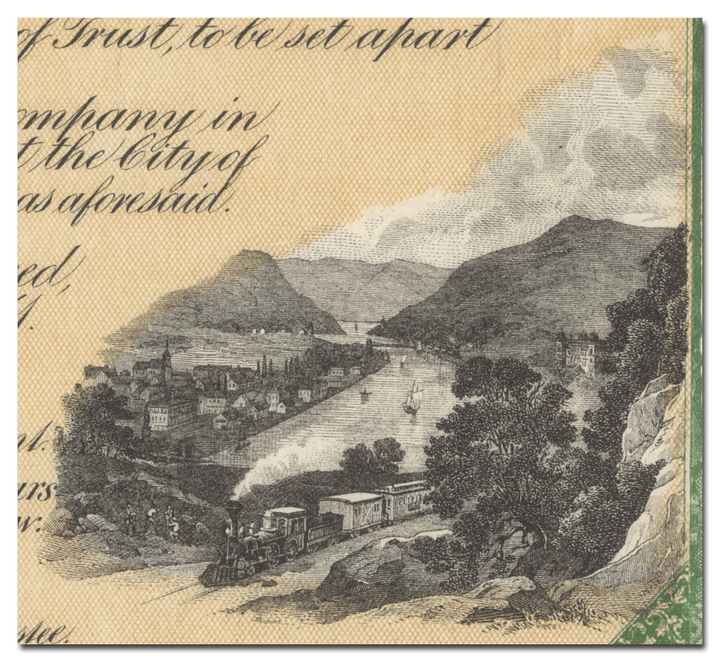 of Trust, to be set apart
ompany in
t the City of
as aforesaid.
ed,
nt.
urs
w.
stee.